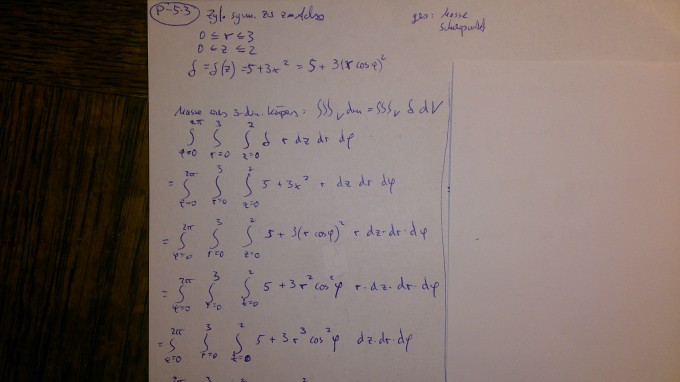 P-5.3 Zyl. symm. zu z-Achse ges: Masse
Schwerpunkt
0 ≤ r ≤ 3
0 ≤ z ≤ 2
δ = δ(z) = 5+3x² = 5 + 3(r cos φ)²
Masse eines 3-dim. Körpers: ∫∫∫_V dm = ∫∫∫_V δ dV
∫_{φ=0}^{2π} ∫_{r=0}^{3} ∫_{z=0}^{2} δ r dz dr dφ
= ∫_{φ=0}^{2π} ∫_{r=0}^{3} ∫_{z=0}^{2} 5 + 3x² r dz dr dφ
= ∫_{φ=0}^{2π} ∫_{r=0}^{3} ∫_{z=0}^{2} 5 + 3(r cos φ)² r dz·dr·dφ
= ∫_{φ=0}^{2π} ∫_{r=0}^{3} ∫_{z=0}^{2} 5 + 3r² cos² φ r·dz·dr·dφ
= ∫_{φ=0}^{2π} ∫_{r=0}^{3} ∫_{z=0}^{2} 5 + 3r³ cos² φ dz·dr·dφ
2π 3 2